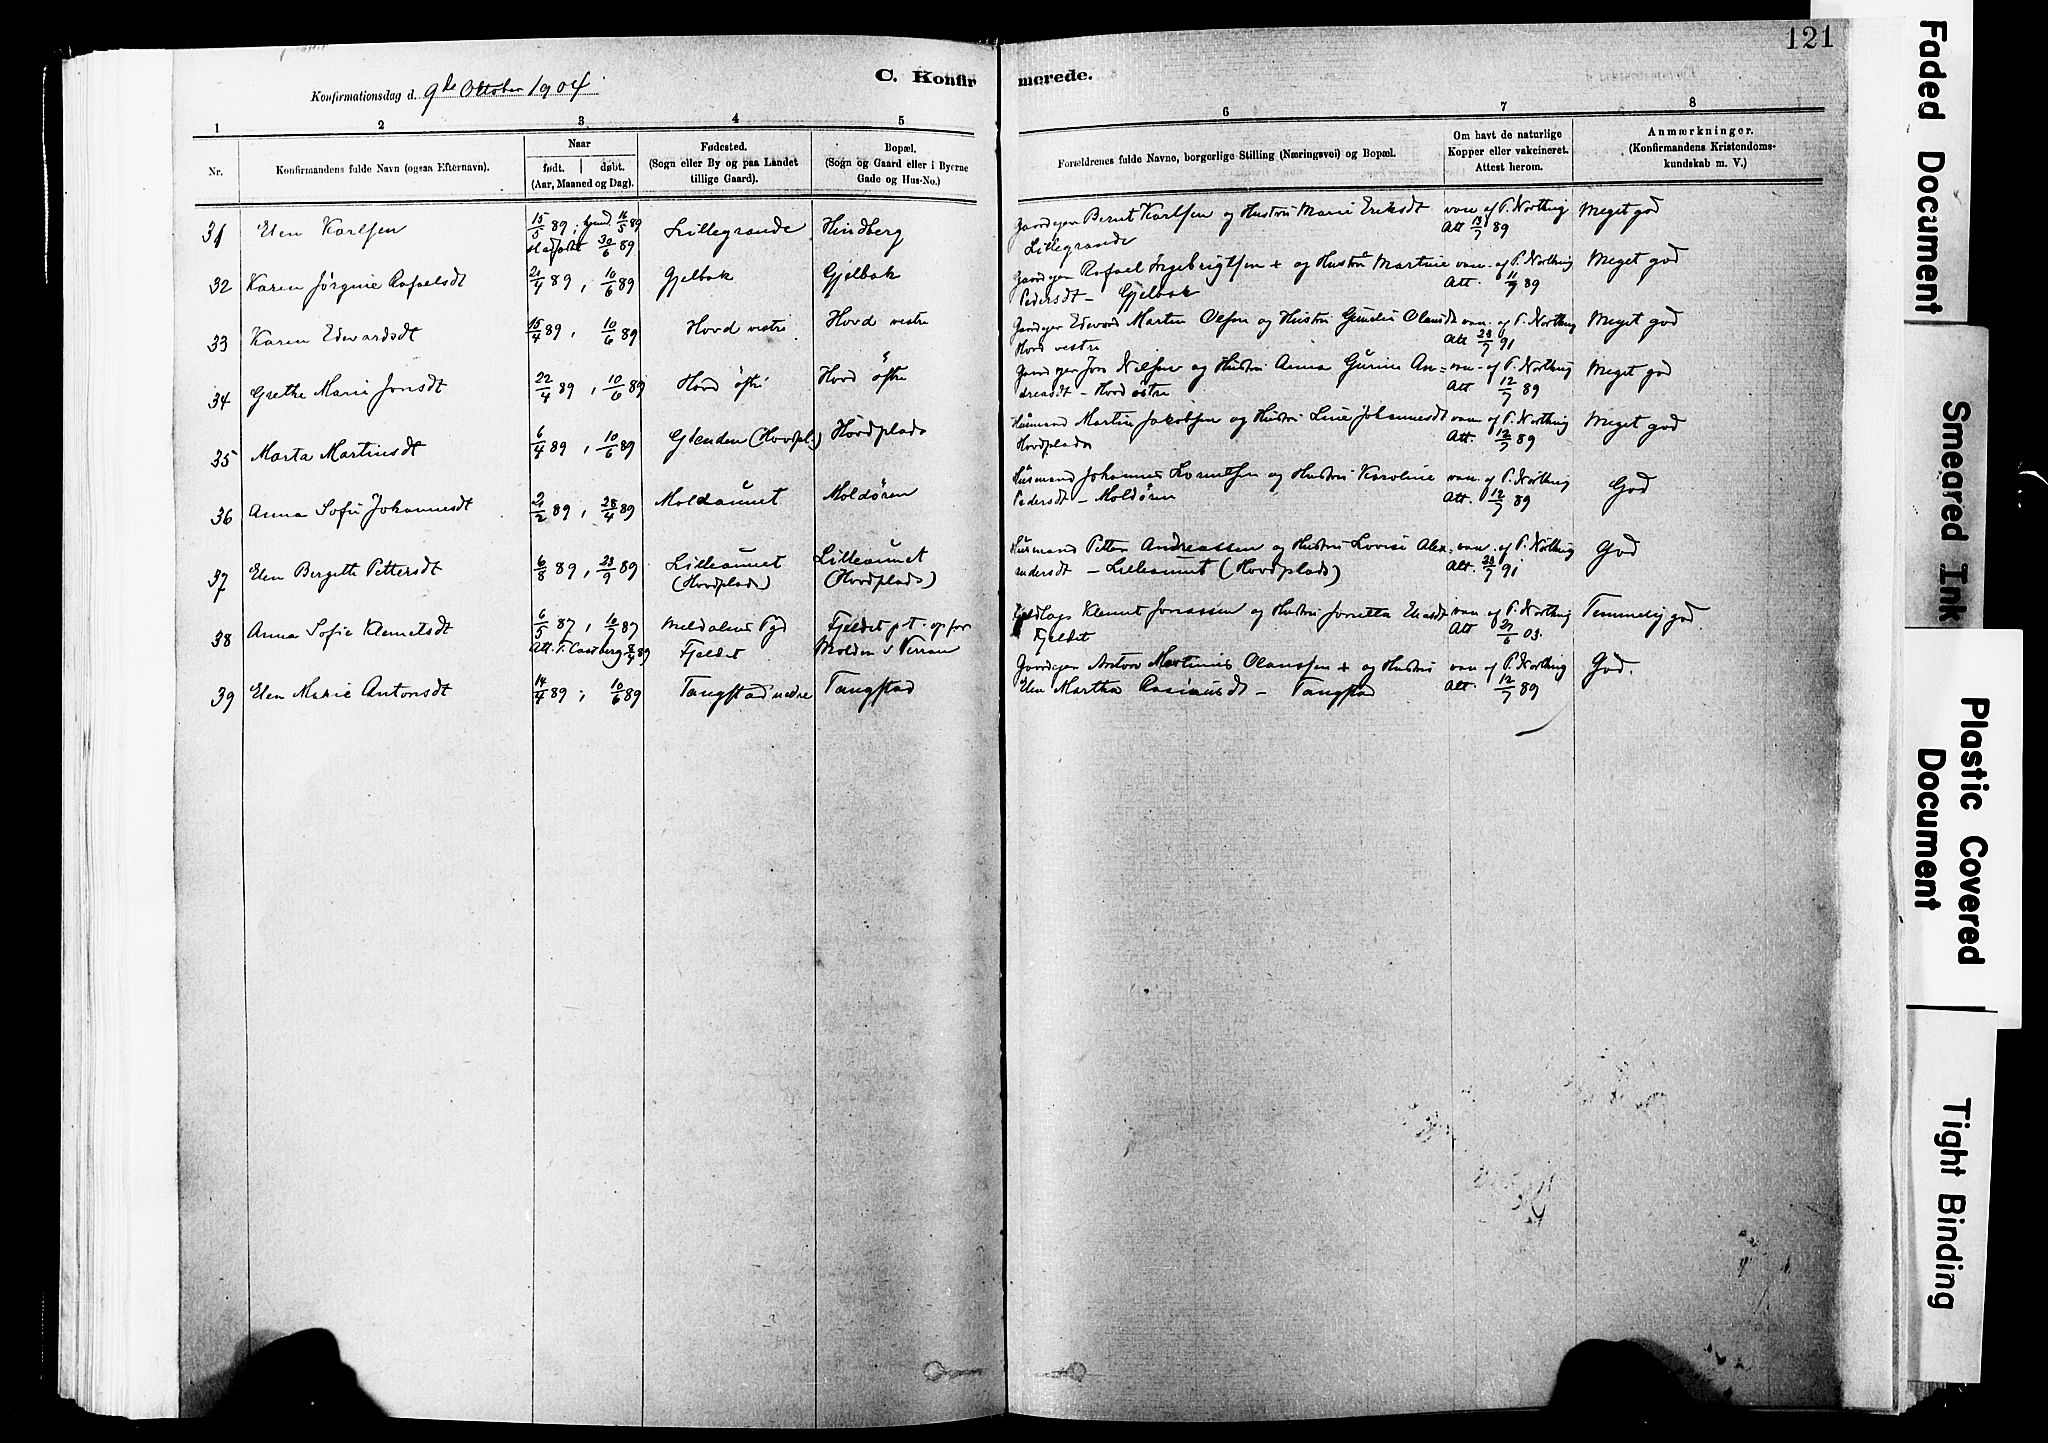 121
C. Konfirmerede.
Konfirmationsdag d. 9de Oktober 1904
1 2 3 4 5 6 7 8
Nr.
Konfirmandens fulde Navn (ogsaa Efternavn).
Naar
født. | døbt.
(Aar, Maaned og Dag).
Fødested.
(Sogn eller By og paa Landet
tillige Gaard).
Bopæl.
(Sogn og Gaard eller i Byerne
Gade og Hus-No.)
Forældrenes fulde Navne, borgerlige Stilling (Næringsvei) og Bopæl.
Om havt de naturlige
Kopper eller vakcineret.
Attest herom.
Anmærkninger.
(Konfirmandens Kristendoms-
kundskab m. V.)
31 Elen Karlsen 15/5 89; hjmd. 16/5 89 Lillegrande Hindberg Gaardejer Bernt Karlsen og Hustru Marie Eriksdt vac. af P. Northug Meget god
stadfæstet 30/6 89 Lillegrande Att 13/7 89
32 Karen Jørgine Rafaelsdt 21/4 89, 10/6 89 Gjelbak Gjelbak Gaardejer Rafael Ingebrigtsen + og Hustru Martine vac. af P. Northug Meget god
Pedersdt - Gjelbak Att. 11/7 89
33 Karen Edvardsdt 15/4 89, 10/6 89 Hovd vestre Hovd vestre Gardejer Edvard Martin Olsen og Hustru Olausdt vac. af P. Northug Meget god
Hovd vestre Att 23/7 91
34 Grethe Marie Jonsdt 22/4 89, 10/6 89 Hovd østre Hovd østre Gaardejer Jon Nilsen og Hustru Anna Gurine An= vac. af P. Northug Meget god
dreasdt - Hovd østre Att 12/7 89
35 Marta Martinsdt 6/4 89, 10/6 89 (Hovdpl.) Hovdplads Husmand Martin Jakobsen og Hustru Line Johannesdt vac. af P. Northug Meget god
Hovdplads Att. 12/7 89
36 Anna Sofie Johannesdt 2/2 89, 28/4 89 Moldaunet Moldøren Husmand Johannes Lorntsen og Hustru Karoline vac. af P. Northug God
Pedersdt - Moldøren Att. 12/7 89
37 Elen Bergette Pettersdt 6/8 89, 23/9 89 Lilleaunet Lilleaunet Husmand Petter Andreassen og Hustru Lovise Alex= vac. af P. Northug God
(Hovdplads) (Hovdplads) andersdt - Lilleaunet (Hovdplads) Att. 23/7 91
38 Anna Sofie Klemetsdt 6/5 87, 10/7 87 Meldalens Fjeldet p.t. Klemet Jonassen og Hustru Jonetta Eliasdt vac. af P. Northug Temmelig god
Att. T. Castberg 8/4 89 Fjeldet Molden i Verran Fjeldet Att 27/6 03.
39 Elen Marie Antonsdt 14/4 89; 10/6 89 Tangstad nedre Tangstad Gaardejer Anton Martinus Olaussen + og Hustru vac. af P. Northug God.
Elen Martha Rasmusdt - Tangstad Att. 12/7 89
Faded Document
Smeared Ink
Plastic Covered
Document
Tight Binding